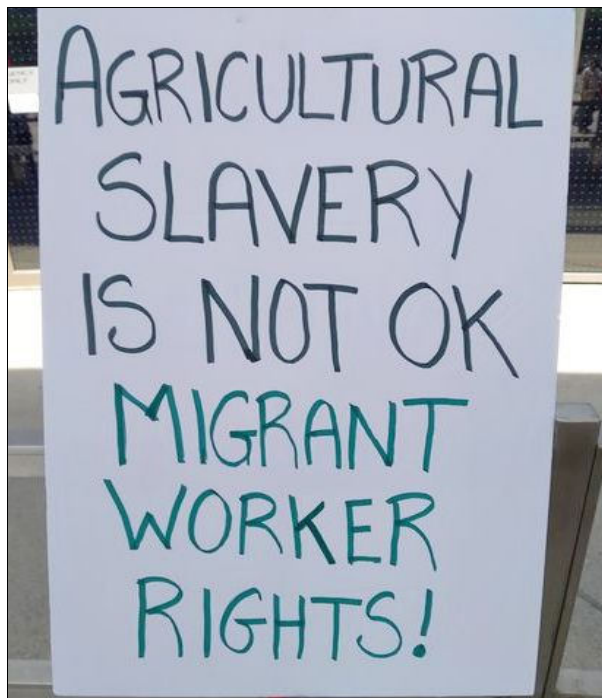 AGRICULTURAL
SLAVERY
IS NOT OK
MIGRANT
WORKER
RIGHTS!